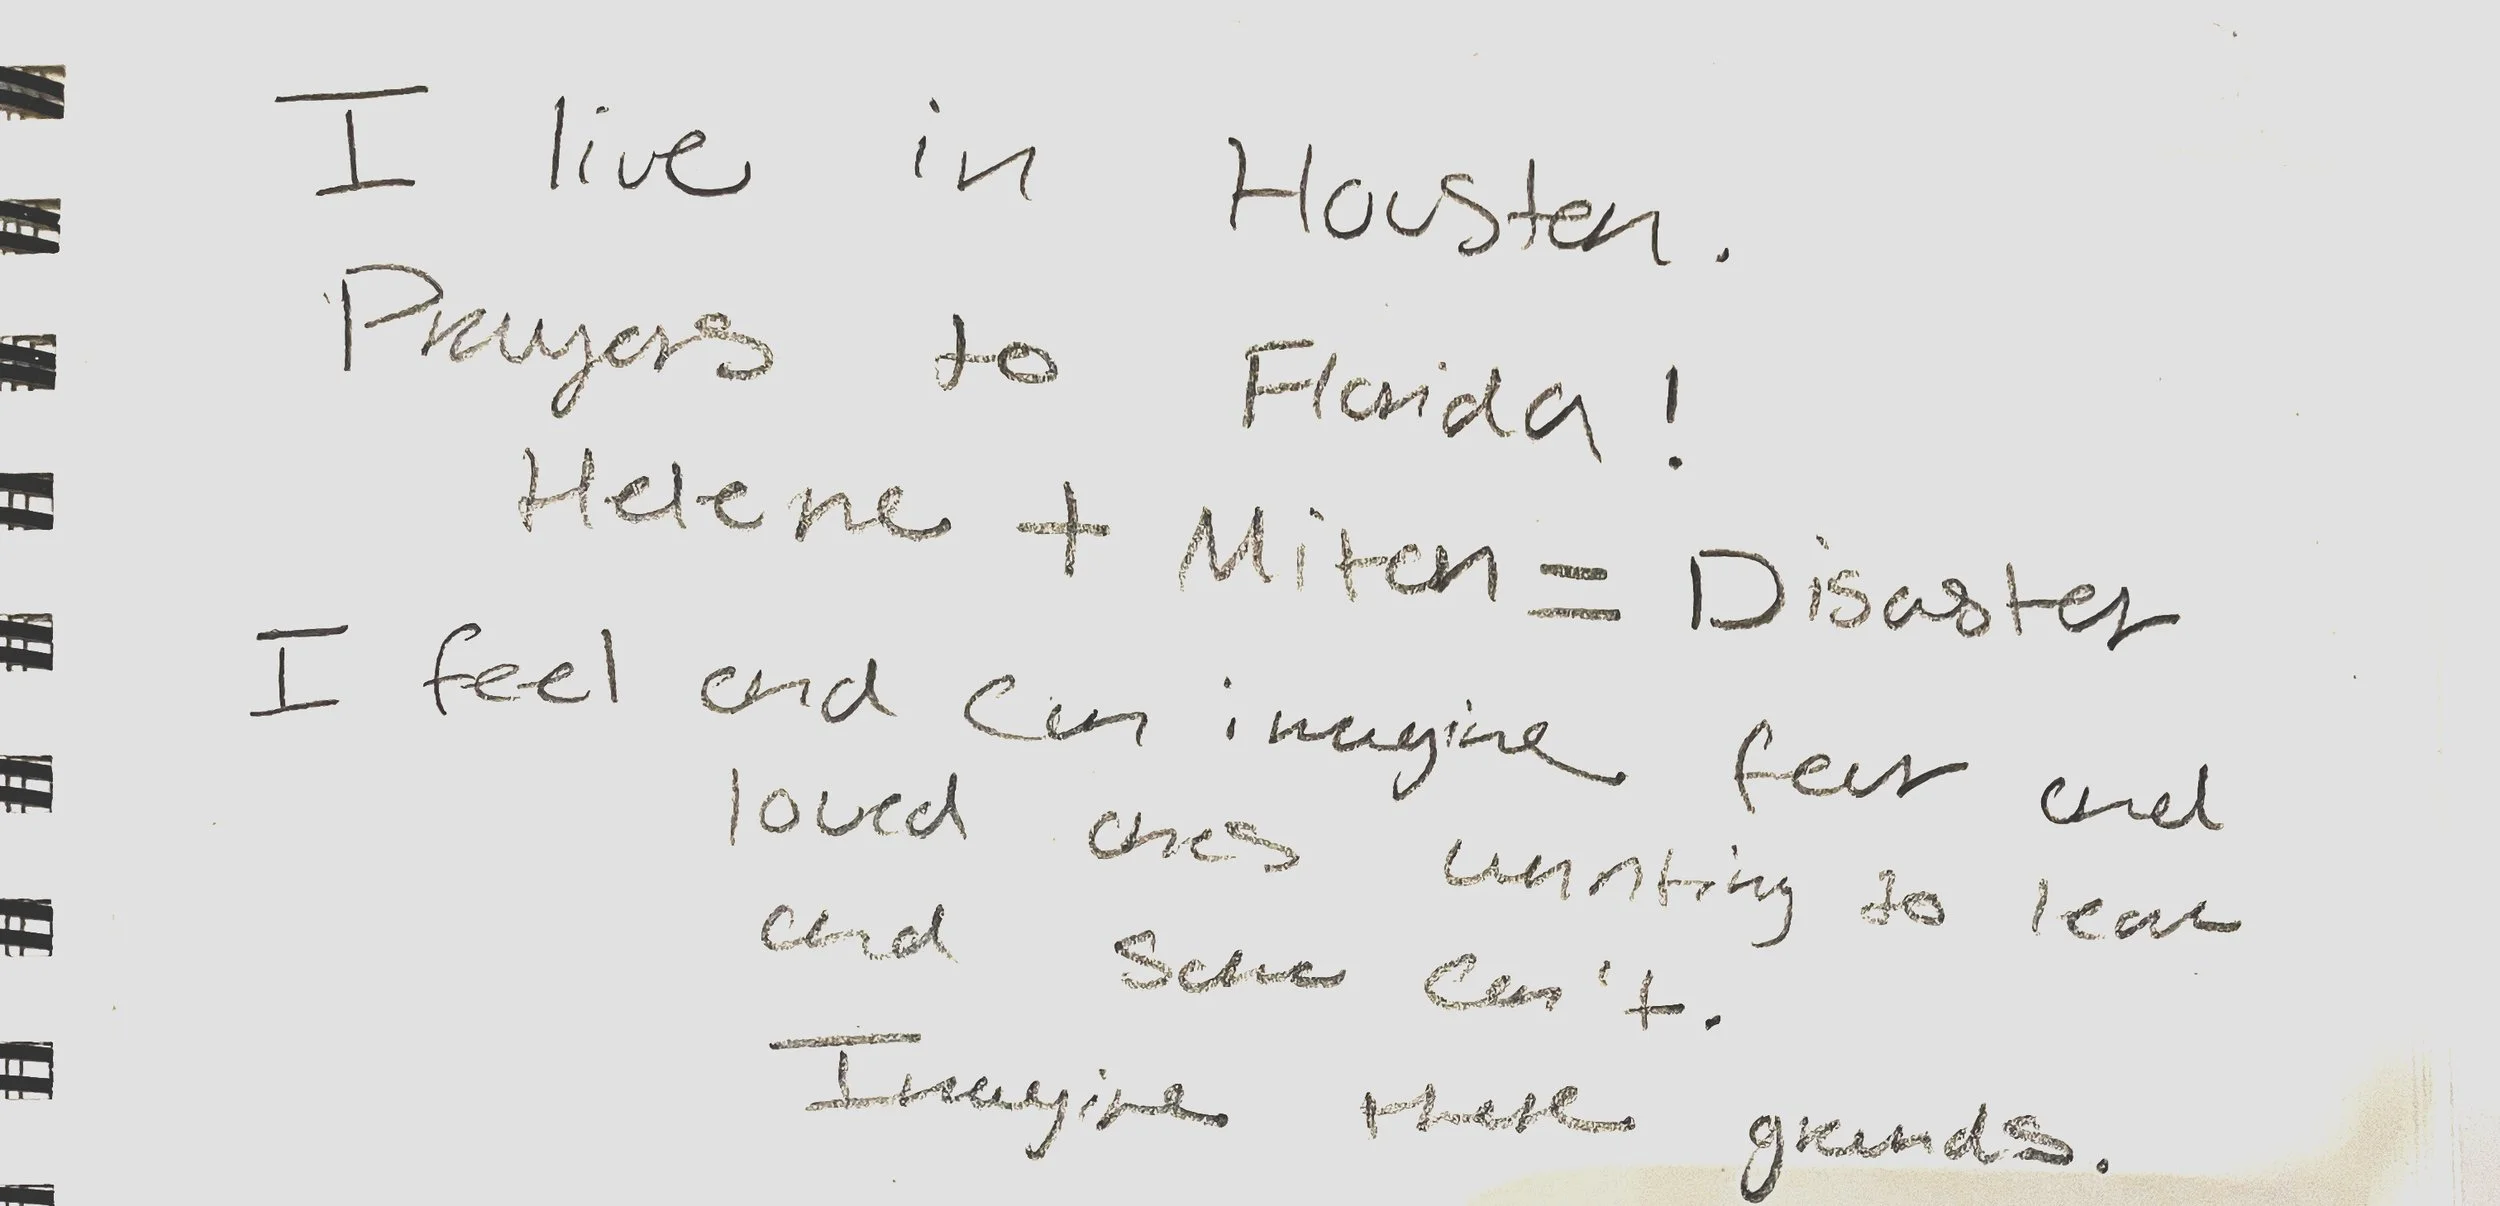 I live in Houston.
Prayers to Florida!
Helene + Milton = Disaster
I feel and can imagine fear and
loved ones wanting to leave
and some can't.
Imagine there grounds.